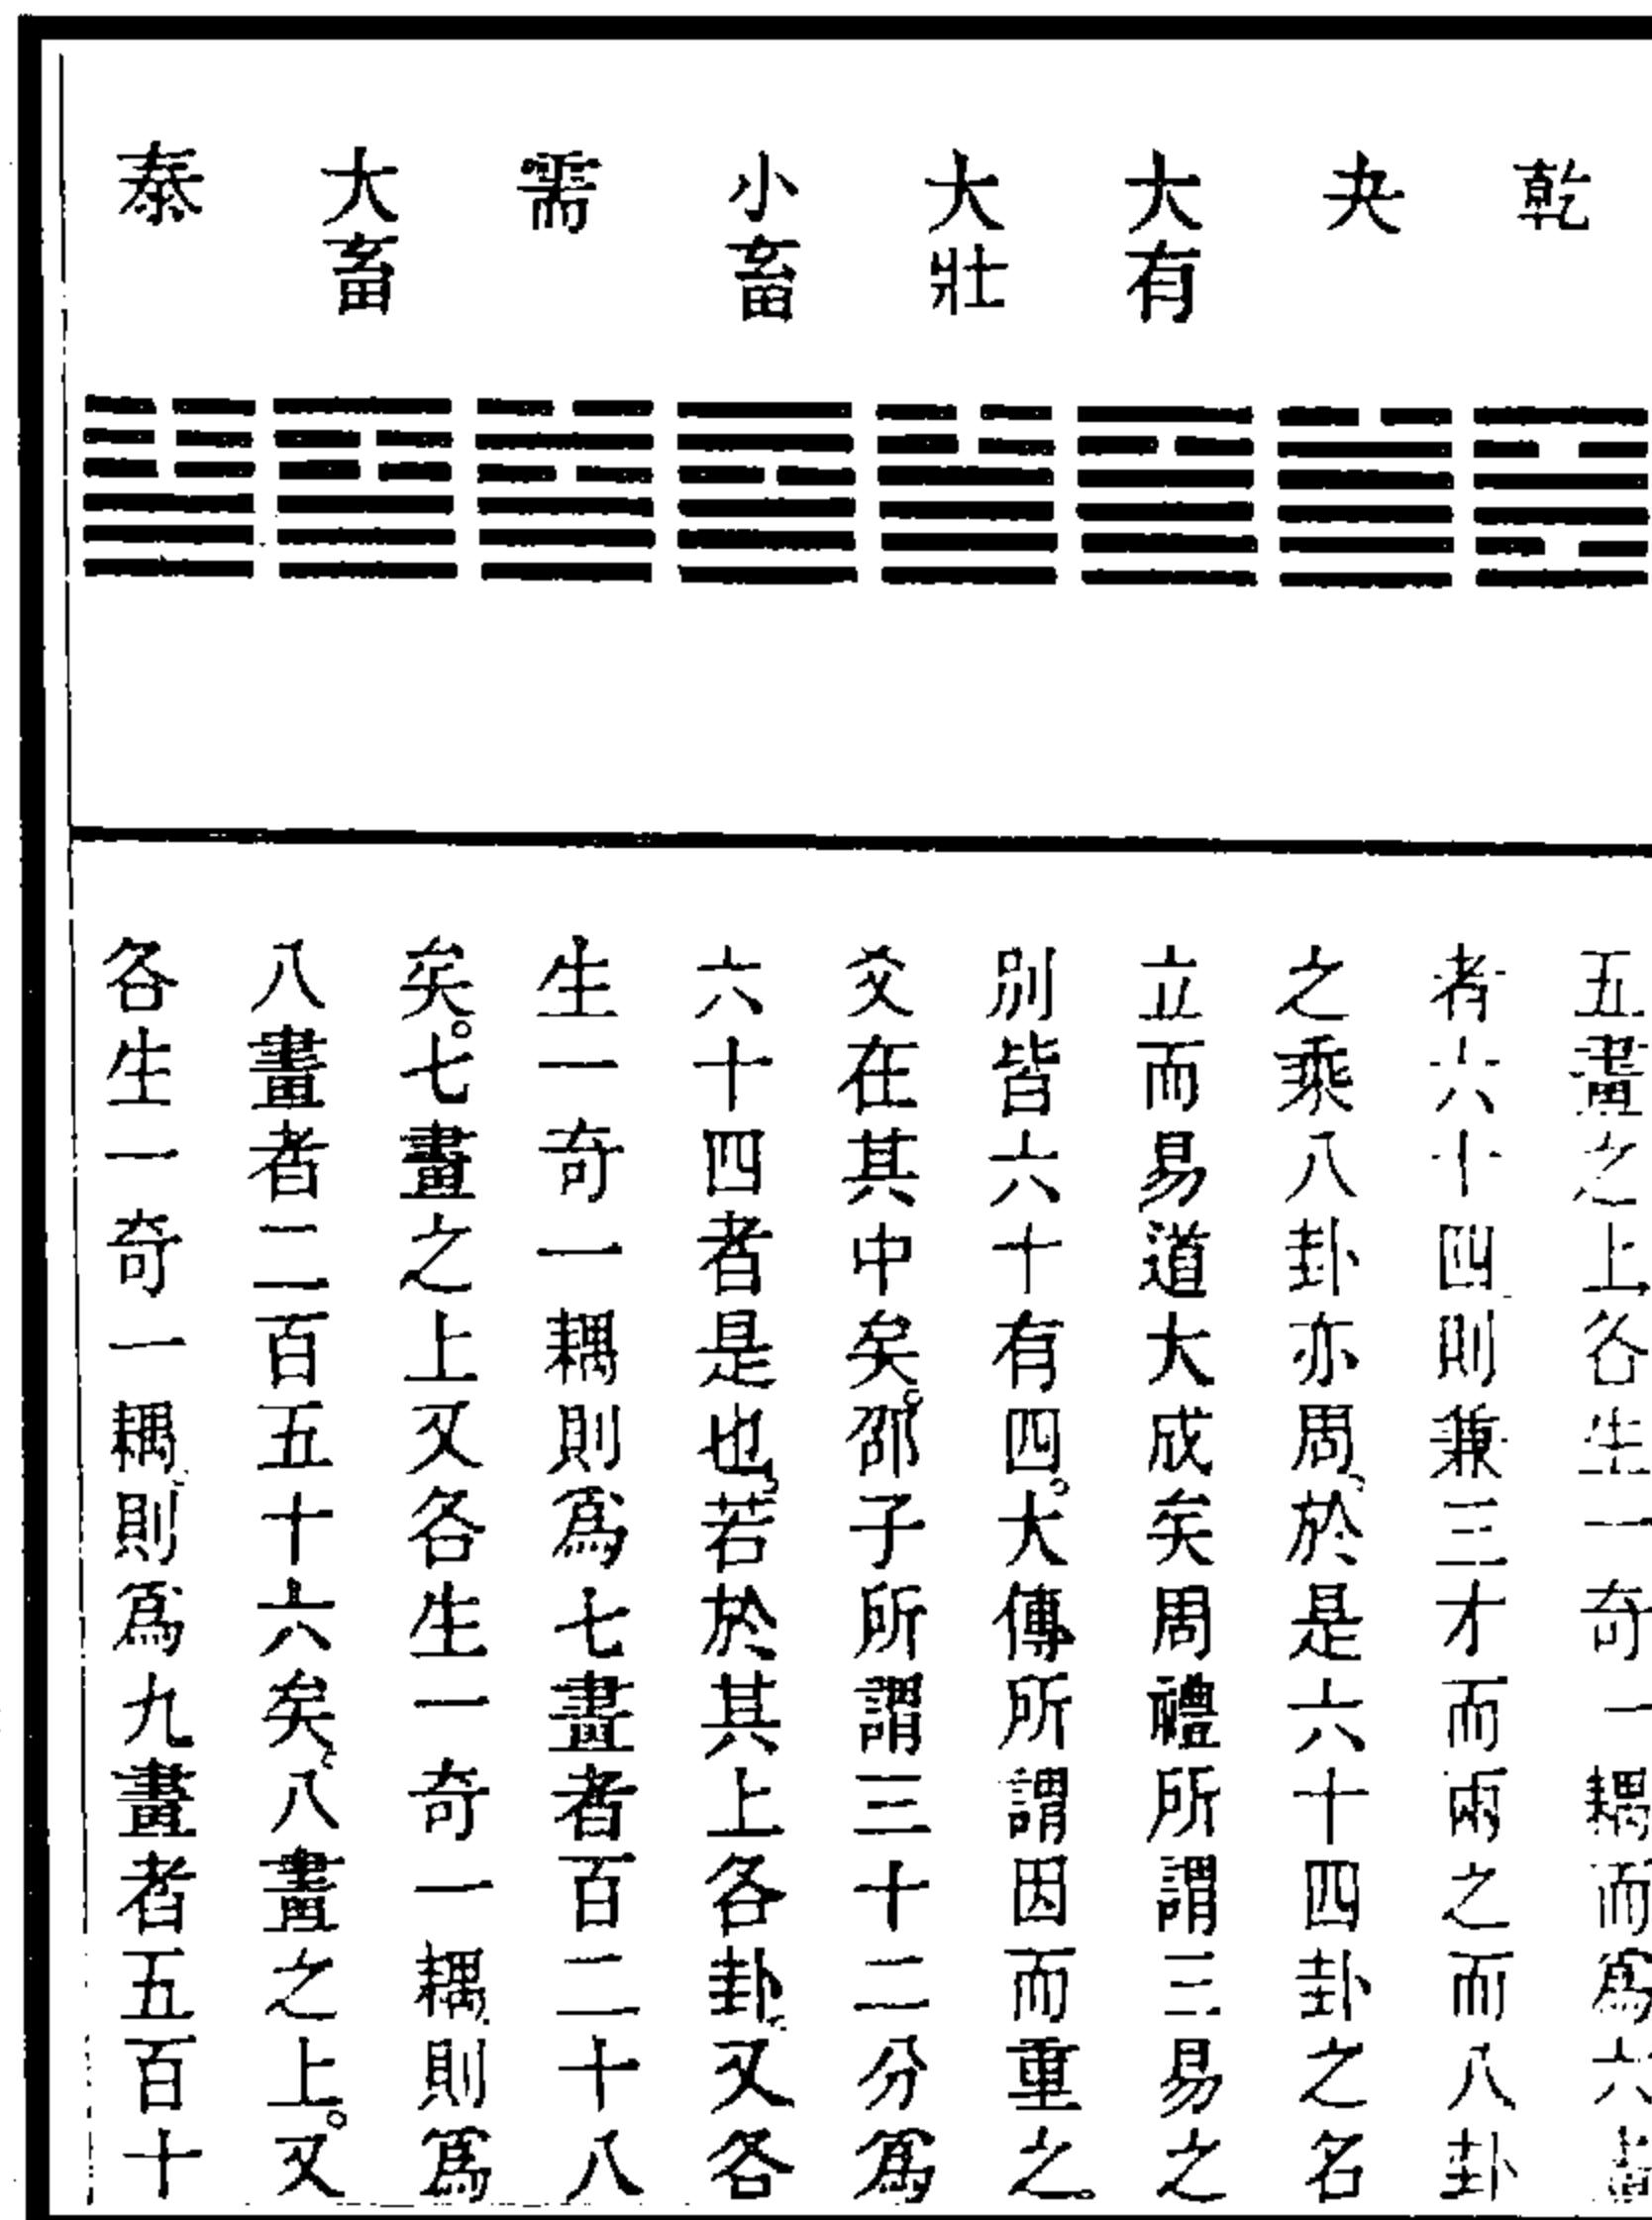 乾
夬
大有
大壯
小畜
需
大畜
泰
五畫之上各生一奇一耦而爲六畫
者六十四則兼三才而兩之而八卦
之乘八卦亦周於是六十四卦之名
立而易道大成矣周禮所謂三易之
別皆六十有四。大傳所謂因而重之。
爻在其中矣。邵子所謂三十二分爲
六十四者是也。若於其上各卦又各
生一奇一耦則爲七畫者百二十八
矣。七畫之上又各生一奇一耦則爲
八畫者二百五十六矣八畫之上。又
各生一奇一耦則爲九畫者五百十